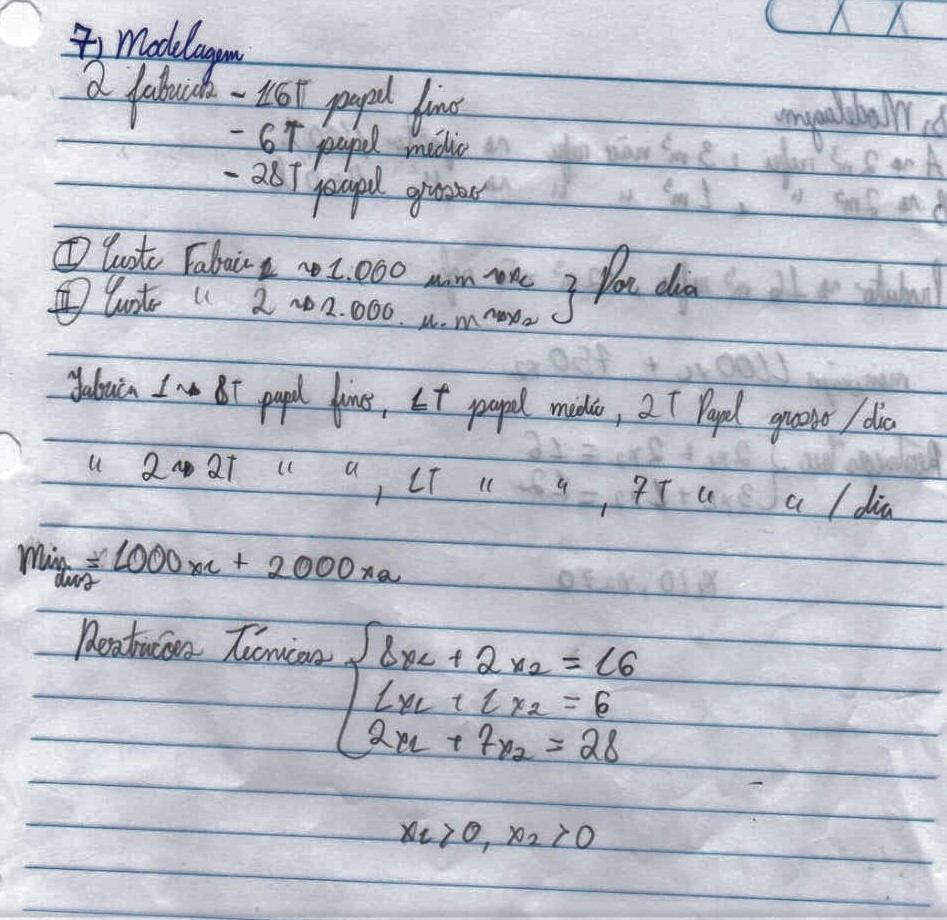 7) Modelagem
2 fabricas - 16T papel fino
- 6T papel médio
- 28T papel grosso
I Custo Fabric 1 ~> 1.000 u.m ~> x1 } Por dia
II Custo " 2 ~> 2.000. u.m ~> x2
Fabrica 1 ~> 8T papel fino, 1T papel médio, 2T Papel grosso / dia
" 2 ~> 2T " ", 1T " ", 7T " " / dia
Min = 1000x1 + 2000x2
dias
Restricões Técnicas { 8x1 + 2x2 = 16
1x1 + 1x2 = 6
2x1 + 7x2 = 28
x1 > 0, x2 > 0